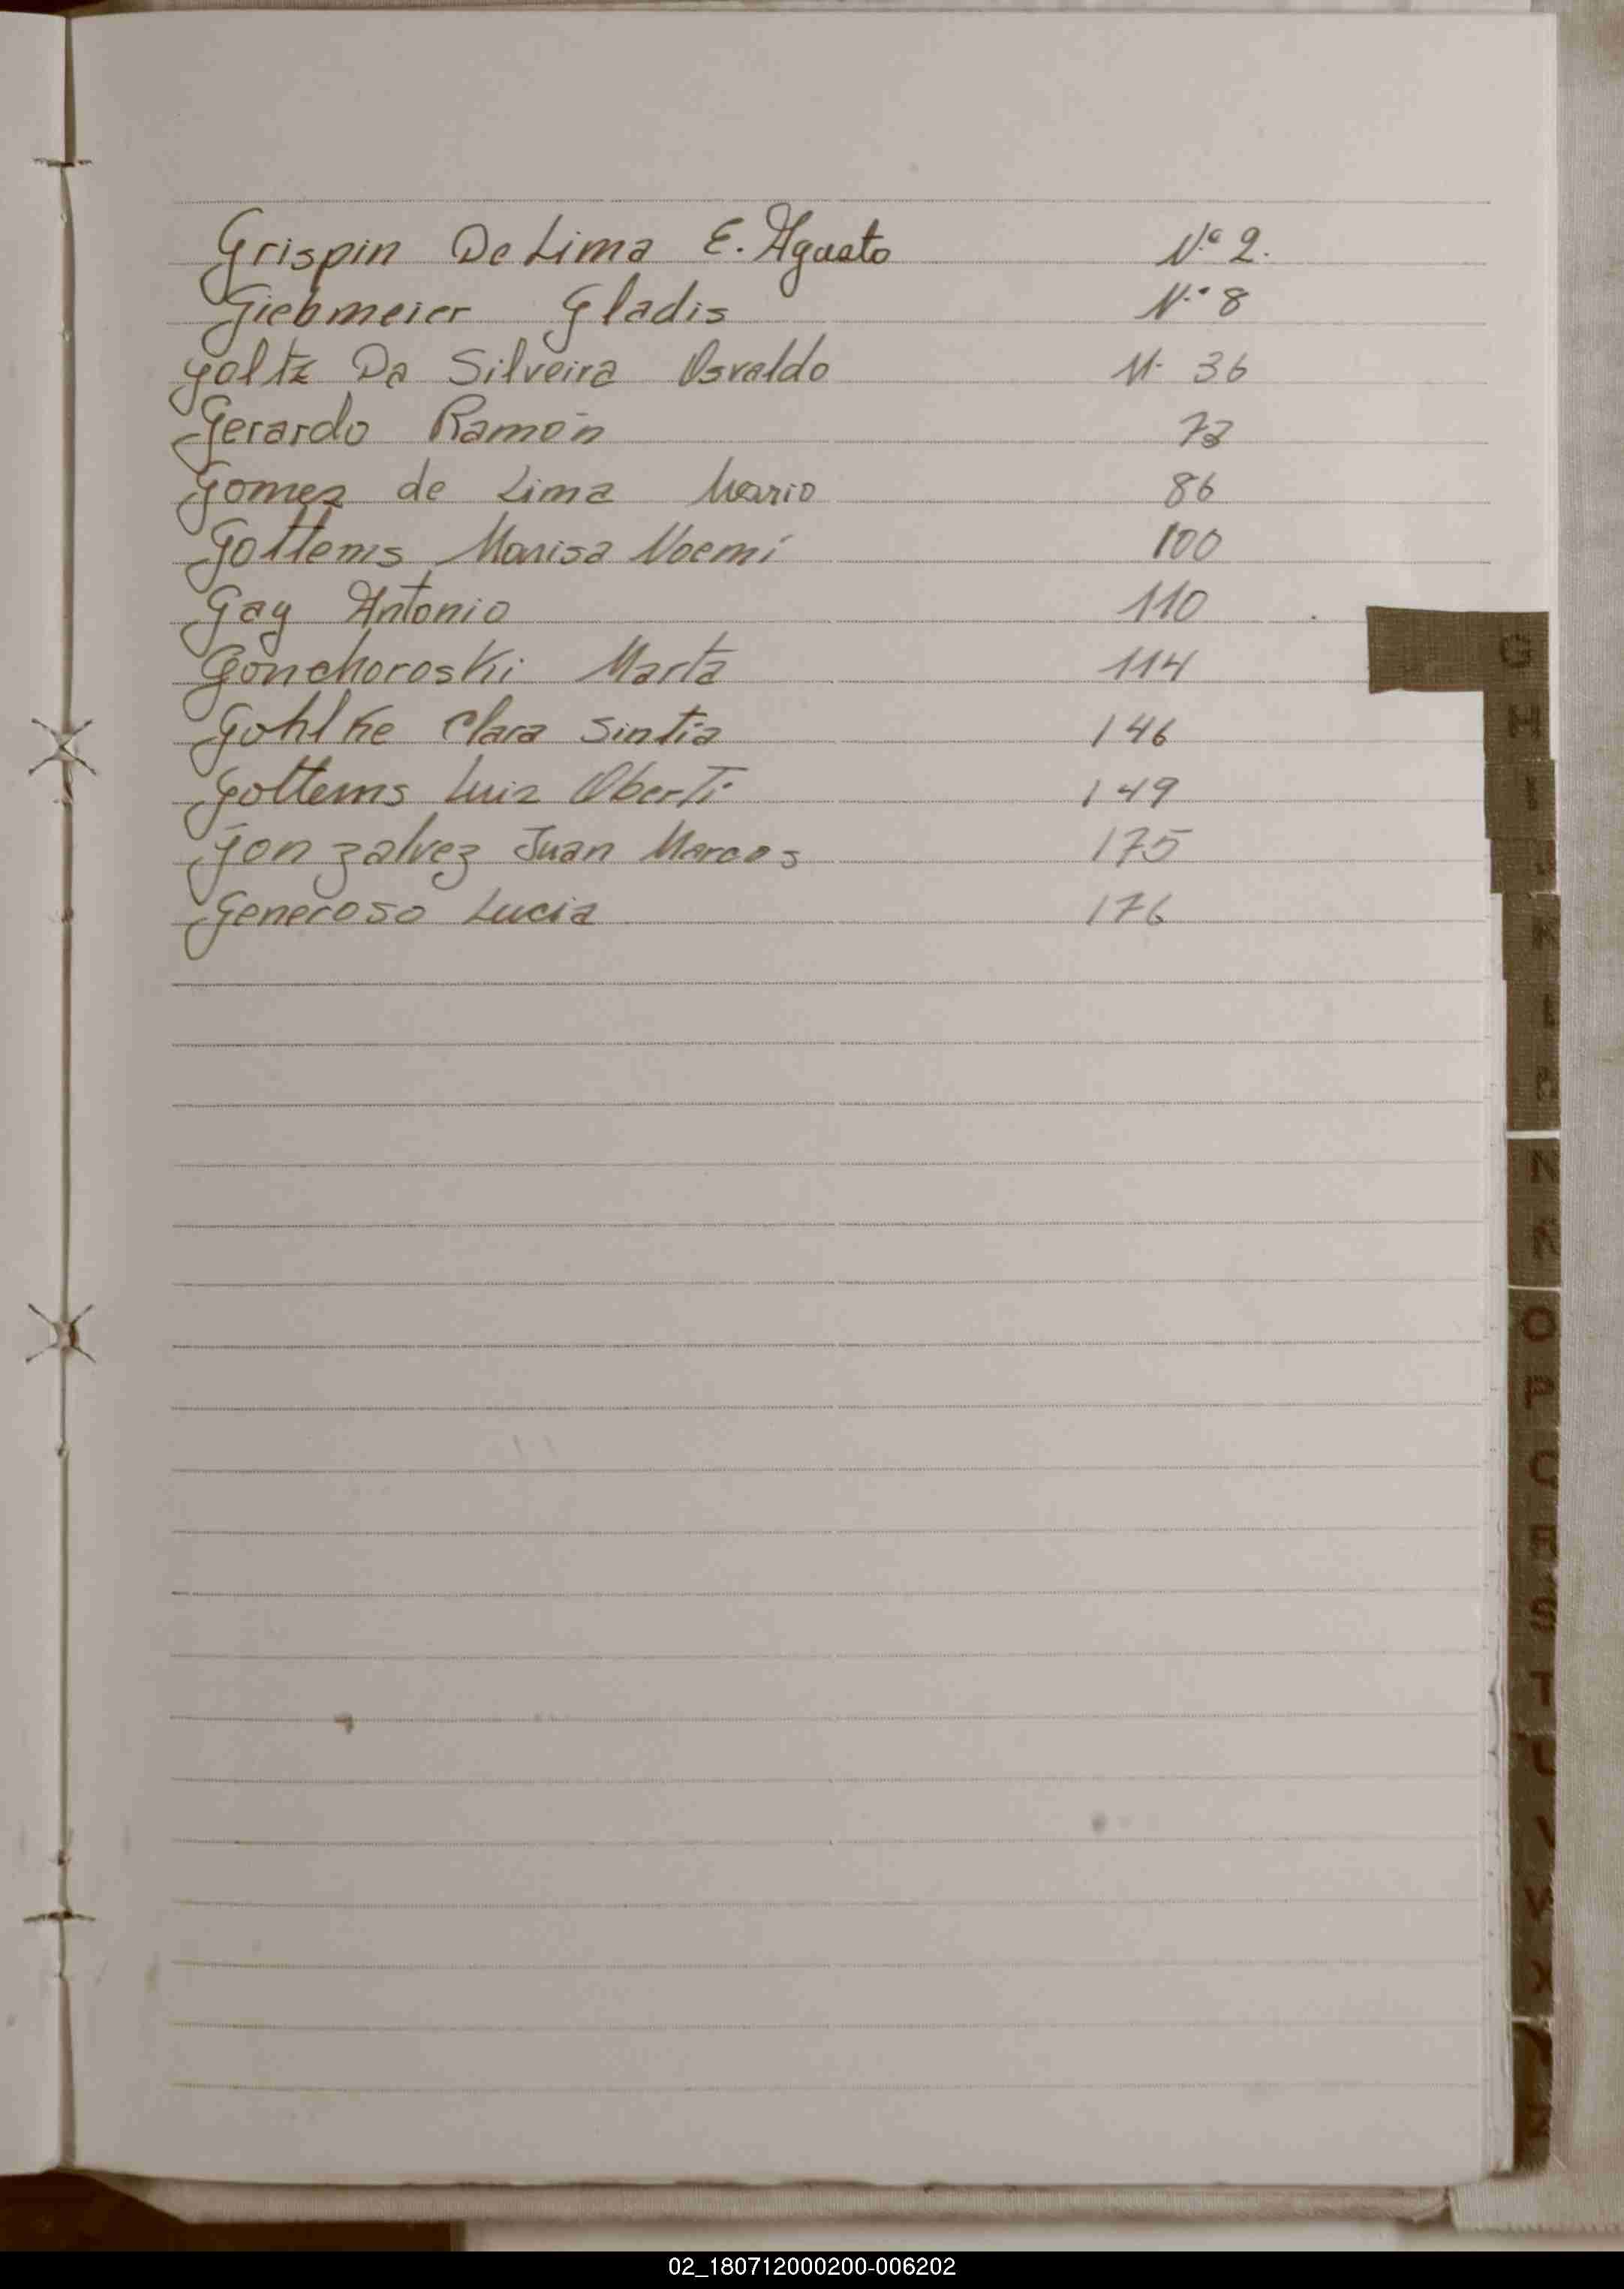 Grispin De Lima E. Agusto Nº 2.
Giebmeier Gladis Nº 8
Goltz Da Silveira Osvaldo N. 36
Gerardo Ramón 73
Gomez de Lima Mario 86
Gottems Marisa Noemí 100
Gay Antonio 110
Gonchoroski Marta 114
Gohlke Clara Sintia 146
Gottems Luiz Oberti 149
Gonzalvez Juan Marcos 175
Generoso Lucia 176
G
H
I
J
K
L
N
Ñ
O
P
Q
R
S
T
U
V
X
02_180712000200-006202